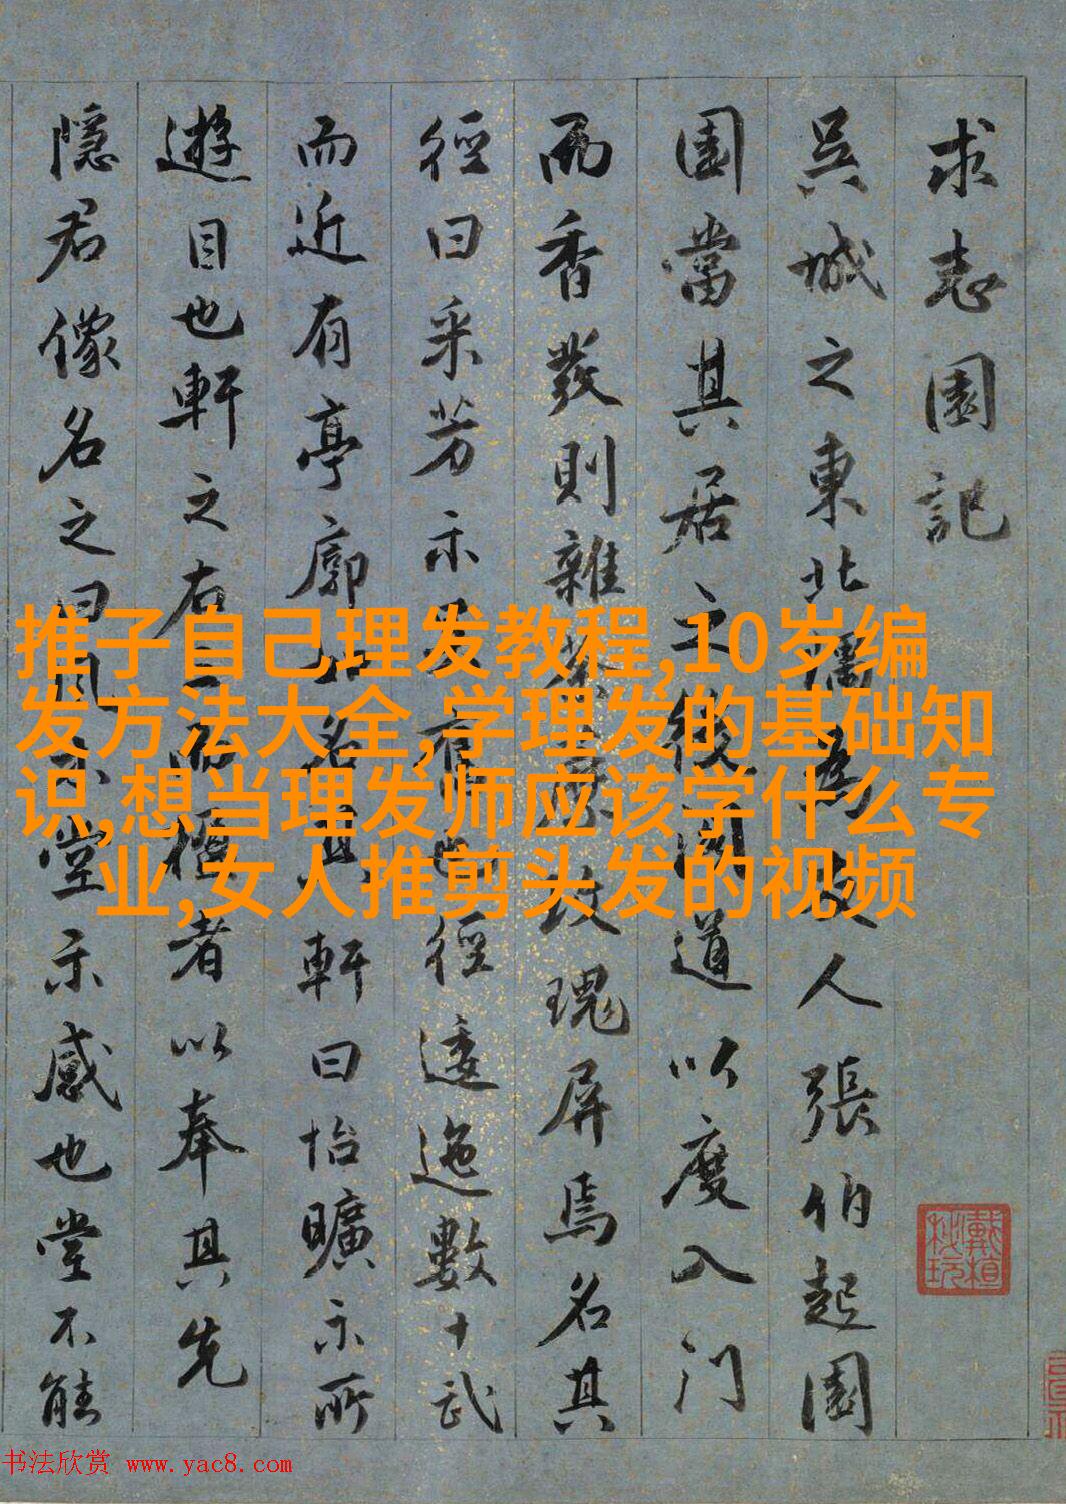 求志園記
吳城之東北隅為故人張伯起園
園當其居之後道以度入門
而香發則雜玫瑰屏焉名其
徑曰采芳示有也徑逶迤數十武
而近有亭廓名其軒曰怡曠示所
遊目也軒之右而楹者以奉其先
隱君像名之曰風木堂示感也堂不能
推子自己理发教程,10岁编
发方法大全,学理发的基础知
识,想当理发师应该学什么专
业,女人推剪头发的视频
书法欣赏 www.yac8.com